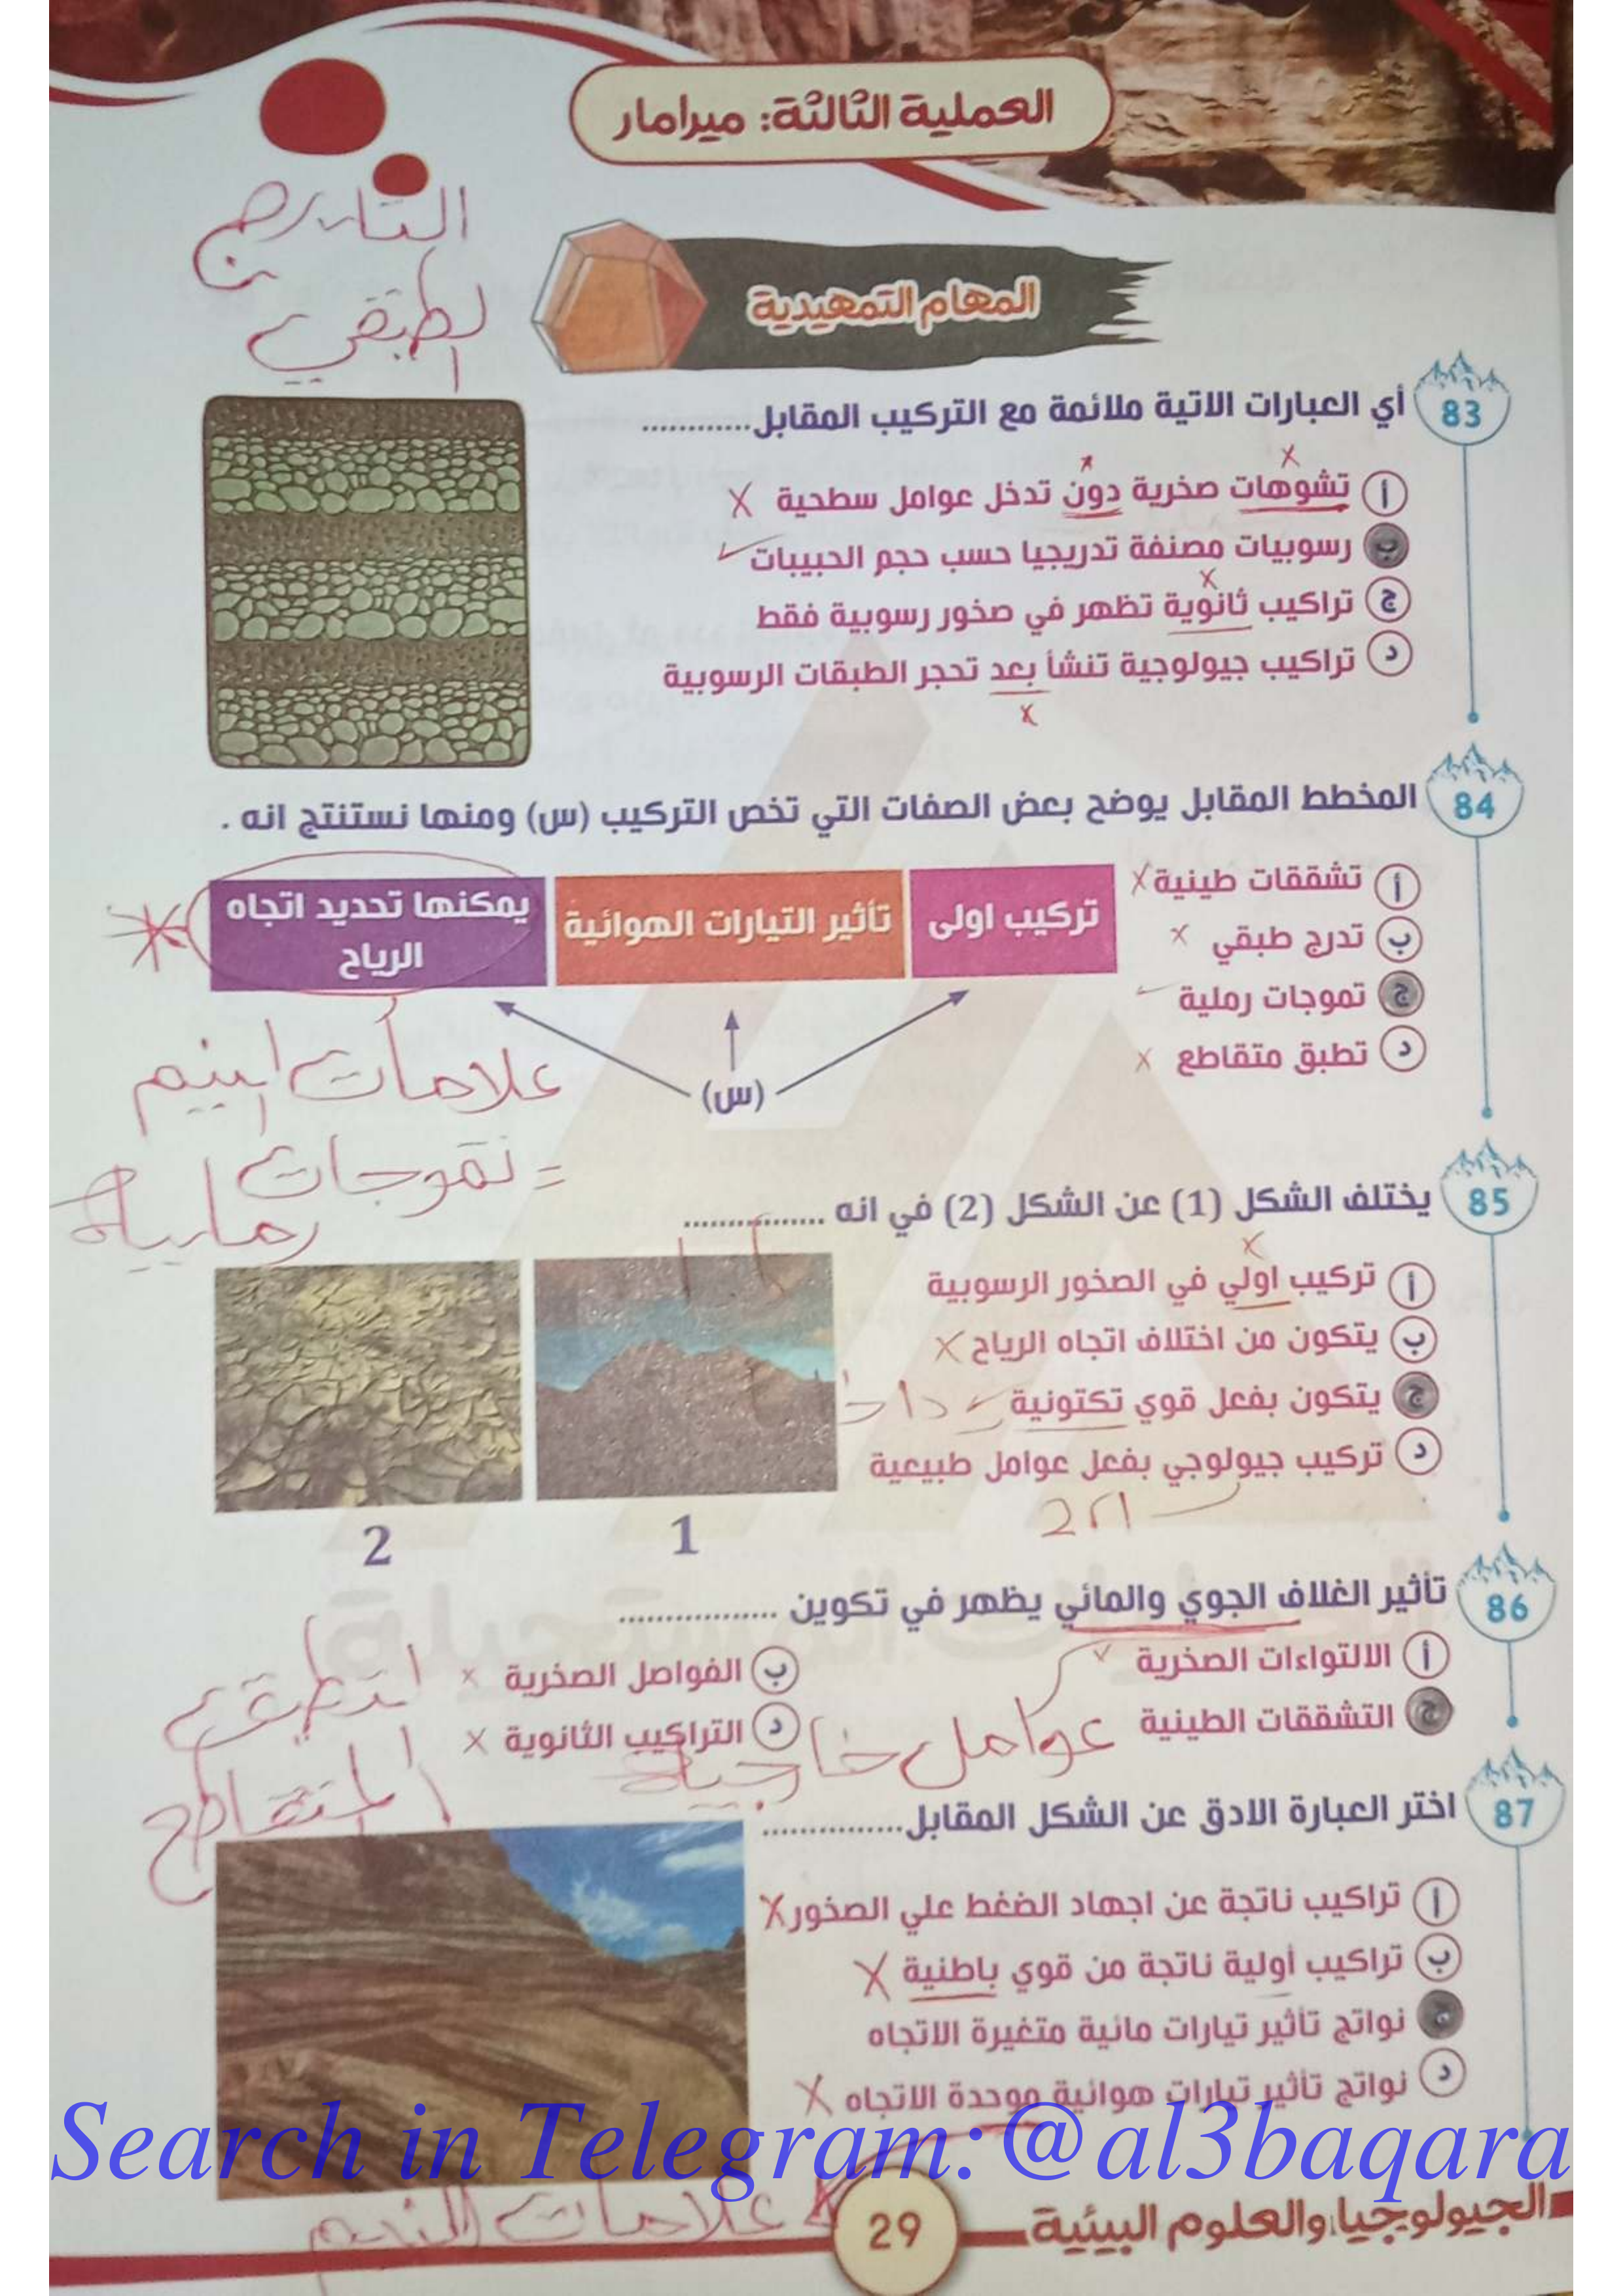 العملية الثالثة: ميرامار
التدرج
الطبقي
المهام التمهيدية
83
أي العبارات الاتية ملائمة مع التركيب المقابل............
أ تشوهات صخرية دون تدخل عوامل سطحية
ب رسوبيات مصنفة تدريجيا حسب حجم الحبيبات
ج تراكيب ثانوية تظهر في صخور رسوبية فقط
د تراكيب جيولوجية تنشأ بعد تحجر الطبقات الرسوبية
84
المخطط المقابل يوضح بعض الصفات التي تخص التركيب (س) ومنها نستنتج انه .
أ تشققات طينية
ب تدرج طبقي
ج تموجات رملية
د تطبق متقاطع
تركيب اولى
تأثير التيارات الهوائية
يمكنها تحديد اتجاه
الرياح
(س)
علامات النيم
= تموجات
رملية
85
يختلف الشكل (1) عن الشكل (2) في انه ................
أ تركيب اولي في الصخور الرسوبية
ب يتكون من اختلاف اتجاه الرياح
ج يتكون بفعل قوي تكتونية
د تركيب جيولوجي بفعل عوامل طبيعية
1
2
86
تأثير الغلاف الجوي والمائي يظهر في تكوين .................
أ الالتواءات الصخرية
ب الفواصل الصخرية
ج التشققات الطينية
د التراكيب الثانوية
عوامل خارجية
التطبق
المتقاطع
87
اختر العبارة الادق عن الشكل المقابل...............
أ تراكيب ناتجة عن اجهاد الضغط علي الصخور
ب تراكيب أولية ناتجة من قوي باطنية
نواتج تأثير تيارات مائية متغيرة الاتجاه
د نواتج تأثير تيارات هوائية موحدة الاتجاه
علامات النيم
Search in Telegram:@al3baqara
29
الجيولوجيا والعلوم البيئية